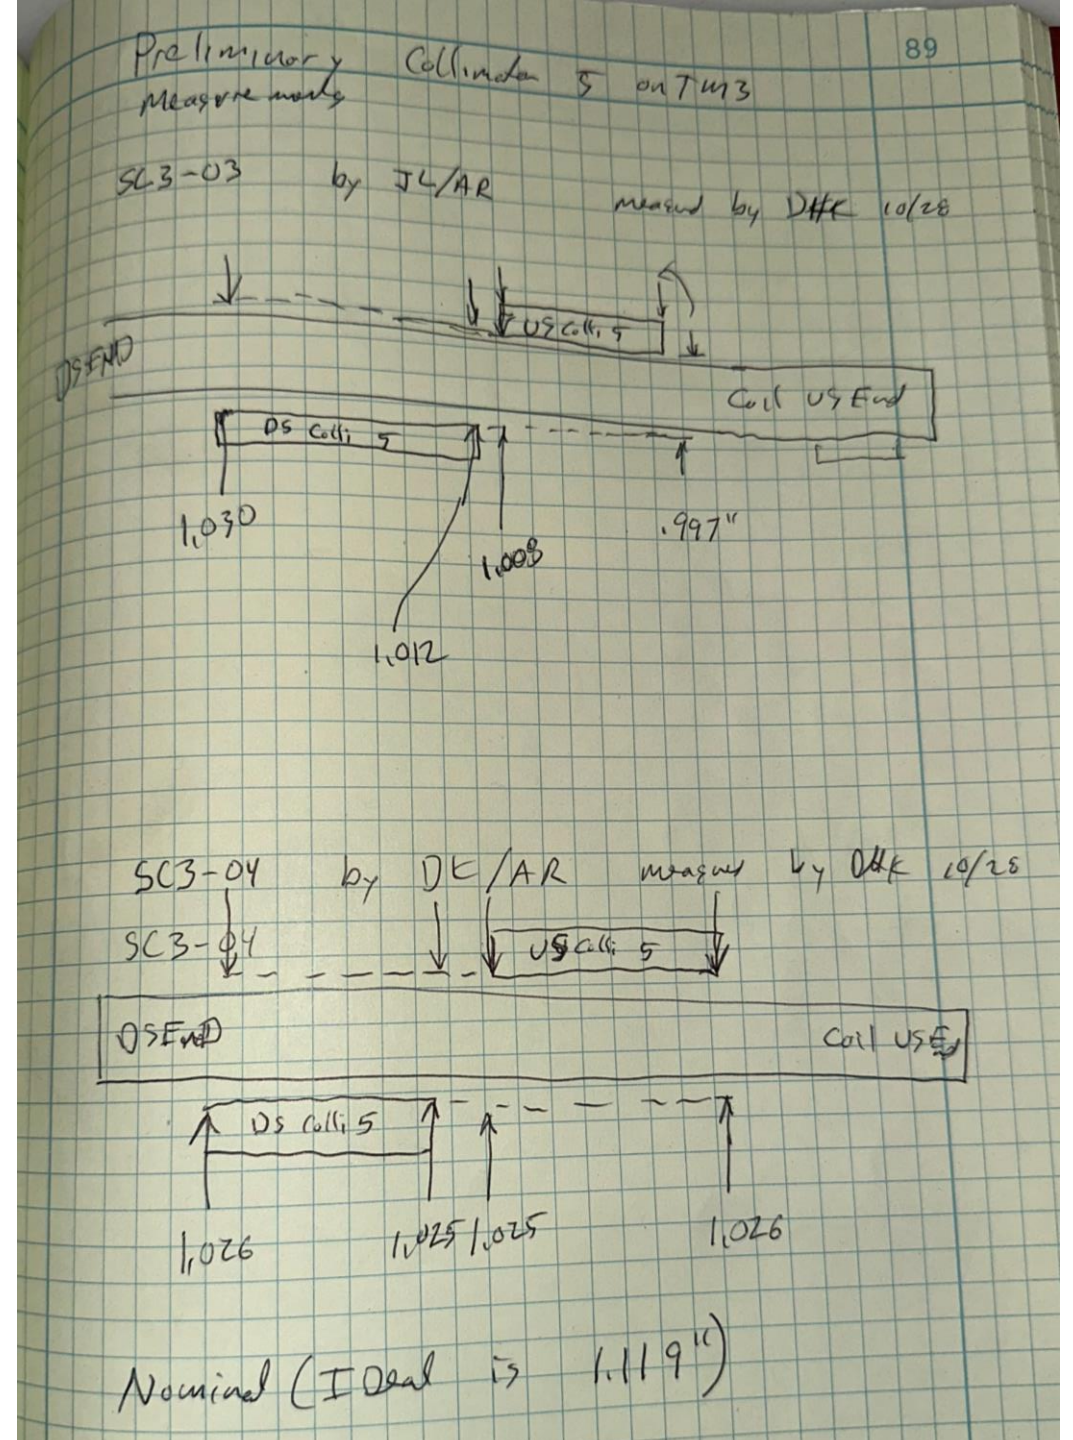 89
Preliminary Collimator 5 on TM3
Measurements
SC3-03 by JL/AR measured by DHK 10/28
US Colli 5
DS END
Coil US End
DS Colli 5
1.030
.997"
1.008
1.012
SC3-04 by DK/AR measured by DHK 10/28
SC3-04
US Colli 5
DS EnD
Coil US End
DS Colli 5
1.026 1.025 1.025 1.026
Nominal (IDeal is 1.119")